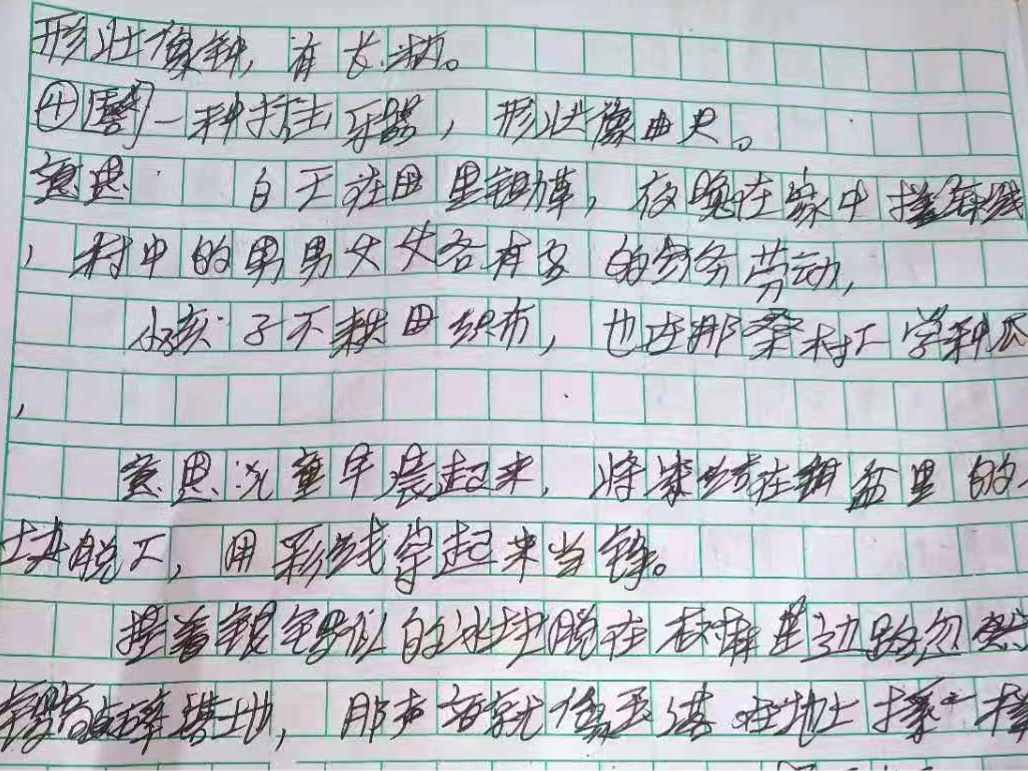 形壮像钟，有长柄。
④[磬]一种打击乐器，形壮像曲尺。
意思 白天在田里锄草，夜晚在家中搓麻线
，村中的男男女女各有各的劳务劳动，
小孩子不耕田织布，也在那桑树下学种瓜
，
意思儿童早晨起来，将凝结在铜盆里的
块脱下，用彩线穿起来当铮。
提着银铮似的冰块脱在树林里边敲忽然
地，那声音就像玉落在地上